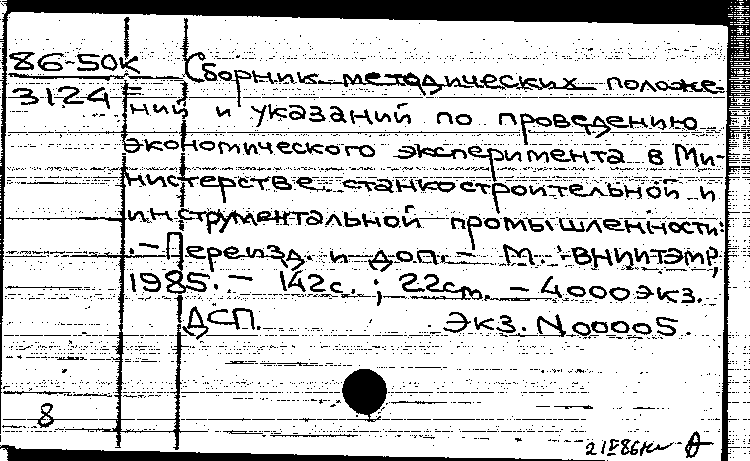 86-50К
3124
Сборник методических положе=
ний и указаний по проведению
экономического эксперимента в Ми-
нистерстве станкостроительной и
инструментальной промышленности.
.-Переизд. и доп. - М. : ВНИИТЭМР,
1985. - 142с. ; 22см. - 4000экз.
ДСП. Экз. N00005.
8